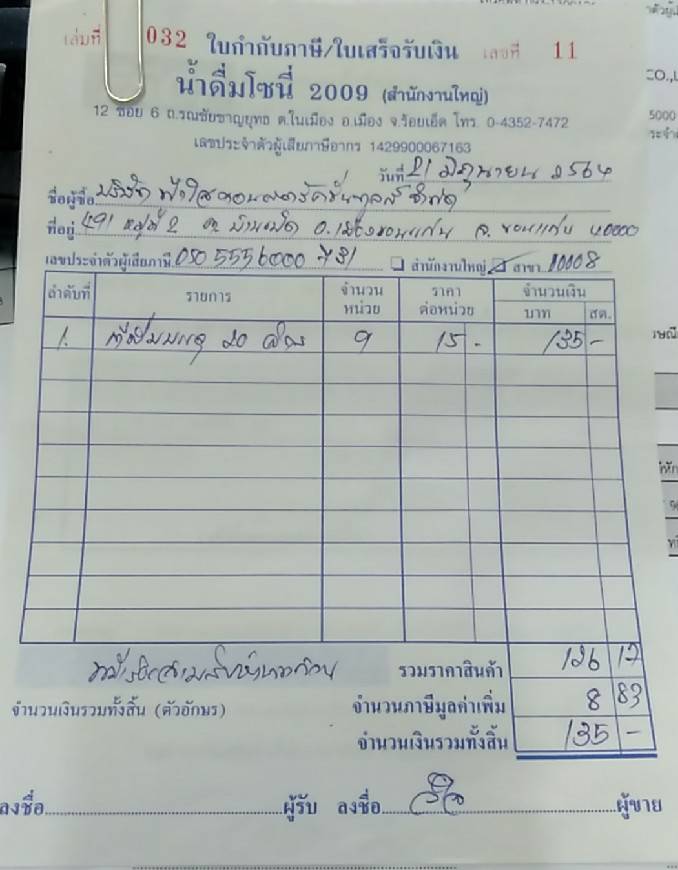 เล่มที่ 032 ใบกำกับภาษี/ใบเสร็จรับเงิน เลขที่ 11
น้ำดื่มโซนี่ 2009 (สำนักงานใหญ่)
12 ซอย 6 ถ.รณชัยชาญยุทธ ต.ในเมือง อ.เมือง จ.ร้อยเอ็ด โทร. 0-4352-7472
เลขประจำตัวผู้เสียภาษีอากร 1429900067163
วันที่ 21 มิถุนายน 2564
ชื่อผู้ซื้อ บริษัท
ที่อยู่ 491 หมู่ที่ 2 ต. บ้านเป็ด อ.เมืองขอนแก่น จ. ขอนแก่น 40000
เลขประจำตัวผู้เสียภาษี 050 5556000 สำนักงานใหญ่ สาขา
ลำดับที่ รายการ จำนวนหน่วย ราคาต่อหน่วย จำนวนเงิน บาท สต.
1. 20 ลิตร 9 15 - 135 -
หนึ่งร้อยสามสิบห้าบาทถ้วน รวมราคาสินค้า 126 17
จำนวนเงินรวมทั้งสิ้น (ตัวอักษร) จำนวนภาษีมูลค่าเพิ่ม 8 83
จำนวนเงินรวมทั้งสิ้น 135 -
ลงชื่อ ผู้รับ ลงชื่อ ผู้ขาย